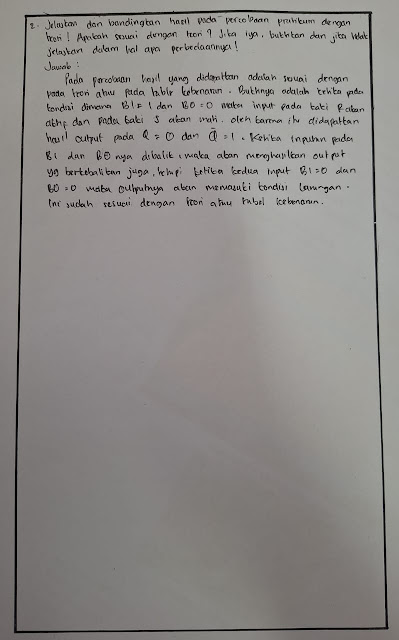 2. Jelaskan dan bandingkan hasil pada percobaan praktikum dengan
teori! Apakah sesuai dengan teori? Jika iya, buktikan dan jika tidak
jelaskan dalam hal apa perbedaannya!
Jawab :
Pada percobaan hasil yang didapatkan adalah sesuai dengan
pada teori atau pada table kebenaran. Buktinya adalah ketika pada
kondisi dimana B1 = 1 dan B0 = 0 maka input pada kaki R akan
aktif dan pada kaki S akan mati. oleh karena itu didapatkan
hasil output pada Q = 0 dan Q̅ = 1. Ketika inputan pada
B1 dan B0 nya dibalik, maka akan menghasilkan output
yg berkebalikan juga, tetapi ketika kedua input B1 = 0 dan
B0 = 0 maka outputnya akan memasuki kondisi larangan.
Ini sudah sesuai dengan teori atau tabel kebenaran.